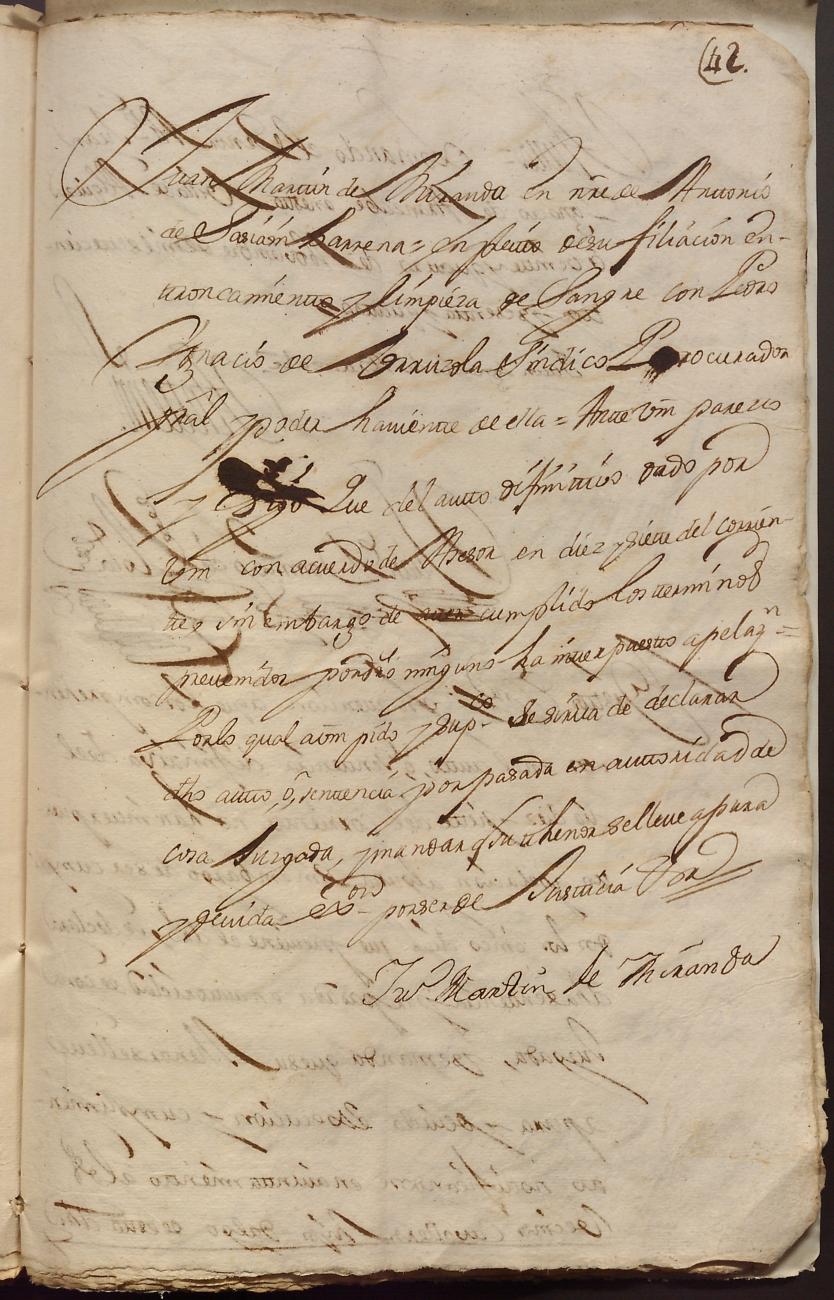 42.
Juan Martin de Miranda en nre de Antonio
de Sasiain Barrena = en pleito de su filiación en-
troncamiento y limpieza de Sangre con Pedro
Ignacio de Sorruzola Sindico Procurador
gral y poder haviente de ella = Ante Vm parezco
y Digo Que del auto difinitivo dado por
Vm con acuerdo de Asesor en diez y siete del corrien-
te, sin embargo de cumplido los terminos
prevenidos por dro ninguno ha interpuesto apelazn =
Por lo qual a Vm pido y supco Se sirva de declarar
dho auto, ó, sentencia por pasada en autoridad de
cosa Juzgada, y mandar q Su thenor se lleve a pura
y devida exon por ser de Justicia
Juo Martin de Miranda